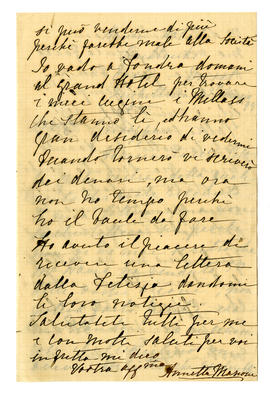 si può venderne di più
perché farebbe male alla Società
Io vado a Londra domani
al Grand Hotel per trovare
i miei cugini i Millais
che stanno lì, ed hanno
gran desiderio di vedermi
Quando tornerò vi scriverò
dei denari, ma ora
non ho tempo perché
ho il baule da fare
Ho avuto il piacere di
ricevere una lettera
dalla Letizia dandomi
le loro notizie.
Salutateli tutti per me
e con molti saluti per voi
in fretta mi dico
Vostra affma
Annetta